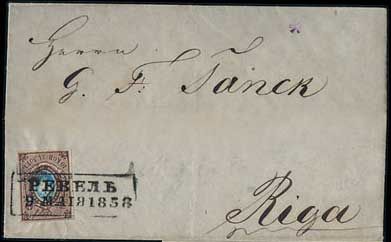 Herrn
G. F. Tanck
Riga
РЕВЕЛЬ
9 МАІЯ 1858